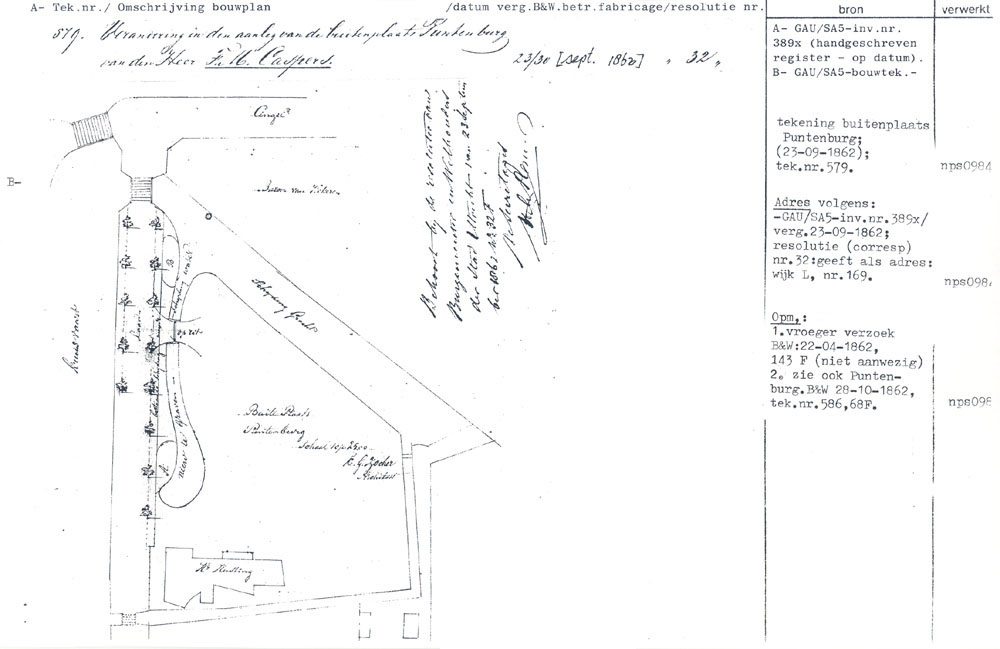 A- Tek.nr./ Omschrijving bouwplan
/datum verg.B&W.betr.fabricage/resolutie nr.
bron
verwerkt
579. Verandering in den aanleg van de buitenplaats Puntenburg
van den Heer F. H. Caspers.
23/30 [sept. 1862] " 32 "
A- GAU/SA5-inv.nr.
389x (handgeschreven
register - op datum).
B- GAU/SA5-bouwtek.-
B-
tekening buitenplaats
Puntenburg;
(23-09-1862);
tek.nr.579.
nps0984
Adres volgens:
-GAU/SA5-inv.nr.389x/
verg.23-09-1862;
resolutie (corresp)
nr.32:geeft als adres:
wijk L, nr.169.
nps098
Opm.:
1.vroeger verzoek
B&W:22-04-1862,
143 F (niet aanwezig)
2. zie ook Punten-
burg.B&W 28-10-1862,
tek.nr.586,68F.
nps098
Singel
Behoort bij de resolutie van
Burgemeester en Wethouders
der Stad Utrecht van 23 Septem
ber 1862 No 32 F
De Secretaris
Gracht
B
A
nieuw te graven
Buite Plaats
Puntenburg
Schaal 1 op 2500
Zocher
Architect